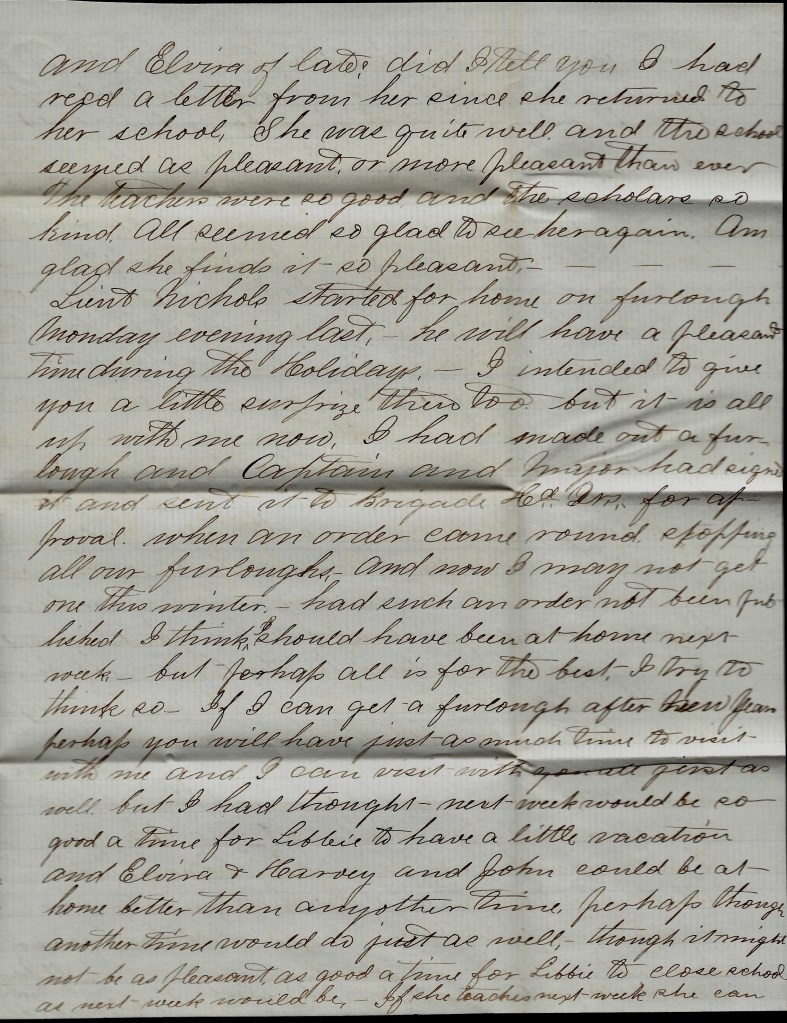 and Elvira of late. did I tell you I had
recd a letter from her since she returned to
her school, She was quite well and the school
seemed as pleasant, or more pleasant than ever
the teachers were so good and the scholars so
kind. All seemed so glad to see her again. Am
glad she finds it so pleasant, – – – – –
Lieut Nichols started for home on furlough
Monday evening last, – he will have a pleasant
time during the Holidays. – I intended to give
you a little surprize then too but it is all
up with me now, I had made out a fur-
lough and Captain and Major had signed
it and sent it to Brigade Hd. Qrs. for ap-
proval. when an order came round stopping
all our furloughs, – And now I may not get
one this winter, – had such an order not been pub
lished I think I should have been at home next
week – but perhaps all is for the best, I try to
think so – If I can get a furlough after new years
perhaps you will have just as much time to visit
with me and I can visit with you all just as
well. but I had thought – next week would be so
good a time for Libbie to have a little vacation
and Elvira & Harvey and John could be at
home better than anyother time, perhaps though
another time would do just as well, – though it might
not be as pleasant, as good a time for Libbie to close school
as next week would be, – If she teaches next week she can